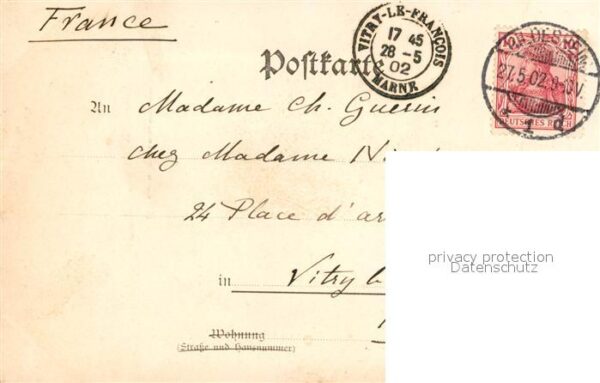 France
VITRY-LE-FRANÇOIS
17 45
28 - 5
02
MARNE
DRESDEN
27.5.02. 8-9V.
* 1 d
DEUTSCHES REICH
Postkarte
An Madame Ch. Guerin
chez Madame
24 Place d'ar
in Vitry le
Wohnung
(Straße und Hausnummer)
privacy protection
Datenschutz